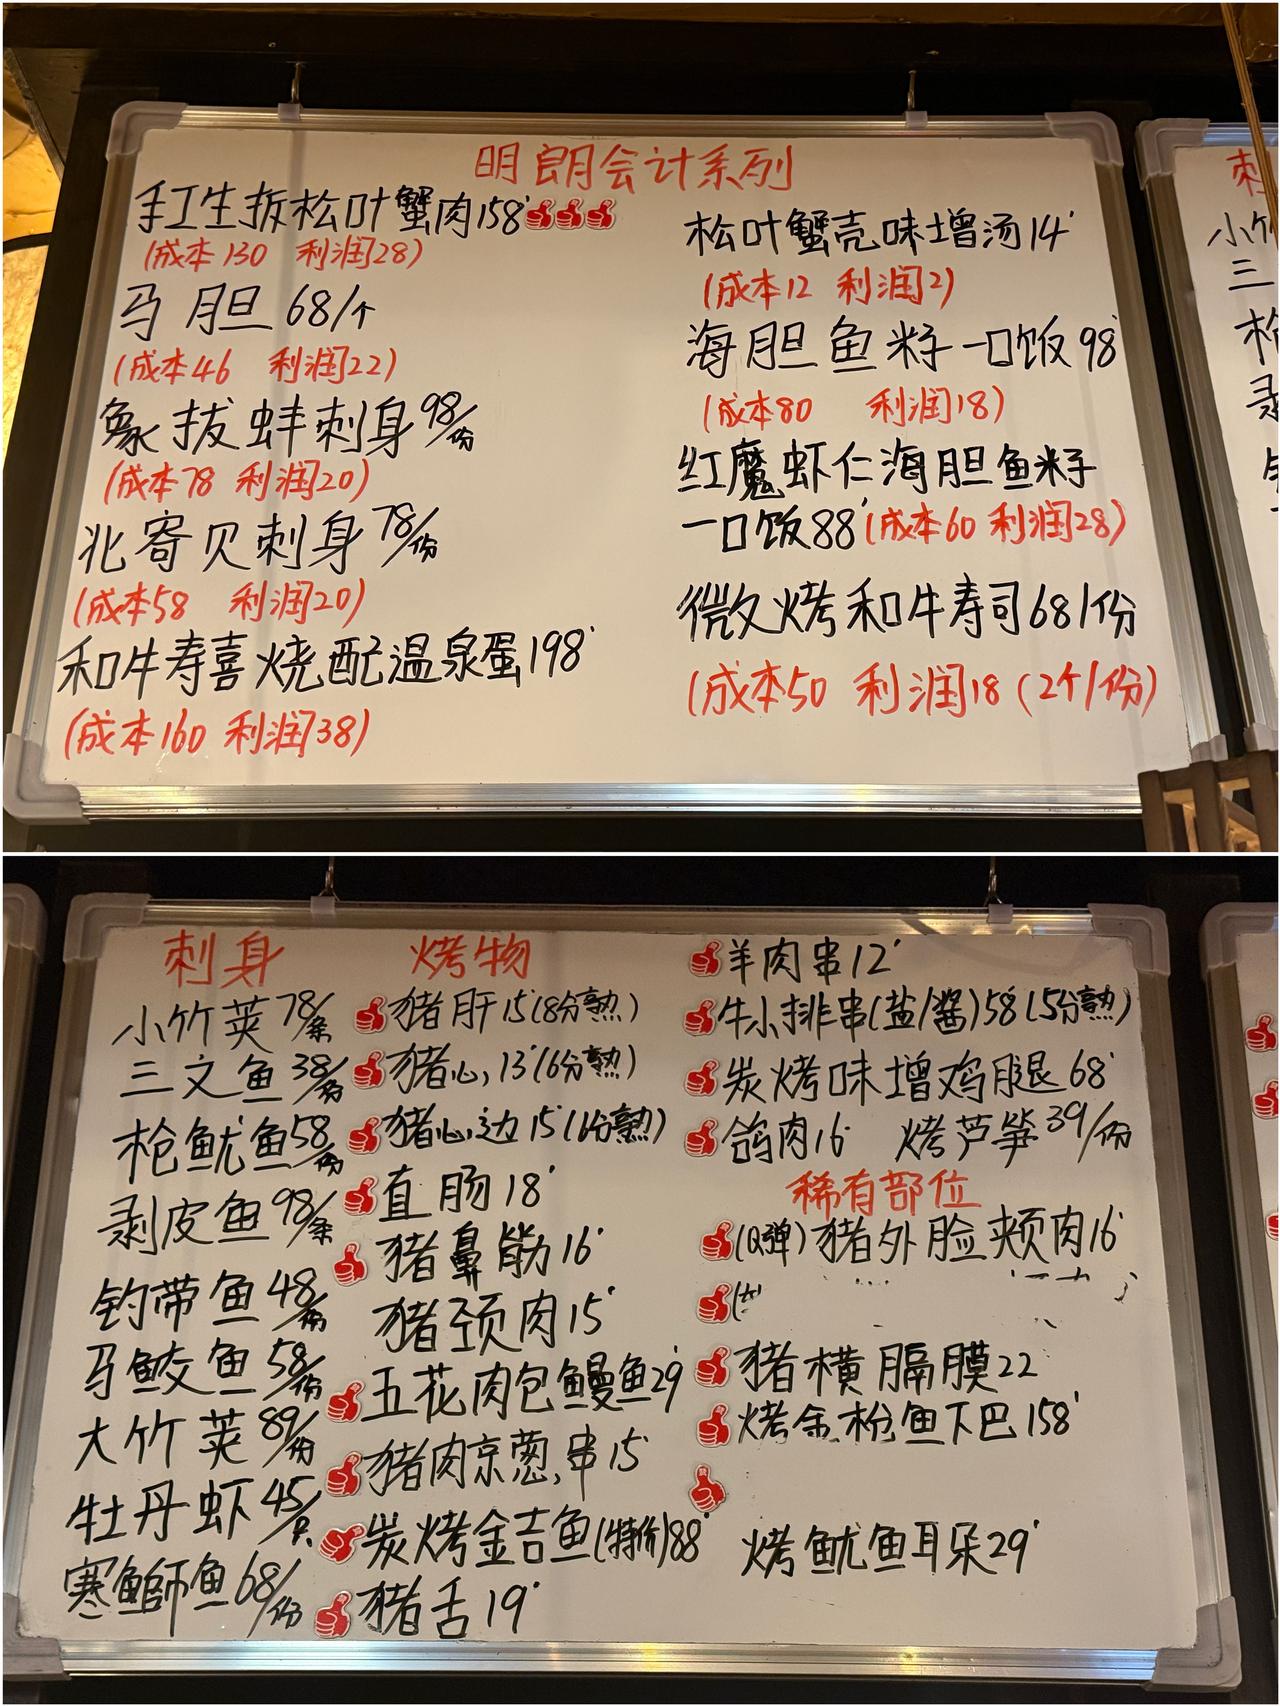 明朗会计系列
手工生拆松叶蟹肉158
(成本130 利润28)
马胆 68/个
(成本46 利润22)
象拔蚌刺身98/份
(成本78 利润20)
北寄贝刺身78/份
(成本58 利润20)
和牛寿喜烧配温泉蛋198
(成本160 利润38)
松叶蟹壳味增汤14
(成本12 利润2)
海胆鱼籽一口饭98
(成本80 利润18)
红魔虾仁海胆鱼籽
一口饭88(成本60 利润28)
微炙烤和牛寿司68/份
(成本50 利润18(2个/份)
刺
小竹
三
刺身
小竹荚78/条
三文鱼38/份
枪鱿鱼58/份
剥皮鱼98/条
钓带鱼48/份
马鲛鱼58/份
大竹荚89/份
牡丹虾45/只
寒鰤鱼68/份
烤物
猪肝15(8分熟)
猪心13(6分熟)
猪心边15(6分熟)
直肠18
猪鼻筋16
猪颈肉15
五花肉包鳗鱼29
猪肉京葱串15
炭烤金吉鱼(特价)88
猪舌19
羊肉串12
牛小排串(盐/酱)58(5分熟)
炭烤味增鸡腿68
鸽肉16 烤芦笋39/份
稀有部位
(Q弹)猪外脸颊肉16
猪横膈膜22
烤金枪鱼下巴158
烤鱿鱼耳朵29